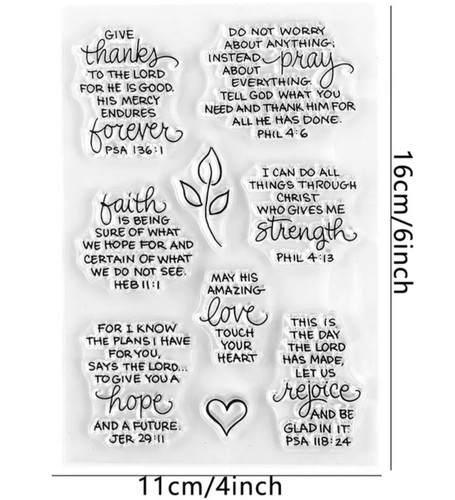 GIVE
thanks
TO THE LORD
FOR HE IS GOOD.
HIS MERCY
ENDURES
forever
PSA 136:1
DO NOT WORRY
ABOUT ANYTHING;
INSTEAD pray
ABOUT
EVERYTHING.
TELL GOD WHAT YOU
NEED AND THANK HIM FOR
ALL HE HAS DONE.
PHIL 4:6
faith
IS BEING
SURE OF WHAT
WE HOPE FOR AND
CERTAIN OF WHAT
WE DO NOT SEE.
HEB 11:1
I CAN DO ALL
THINGS THROUGH
CHRIST
WHO GIVES ME
strength
PHIL 4:13
MAY HIS
AMAZING
love
TOUCH
YOUR
HEART
FOR I KNOW
THE PLANS I HAVE
FOR YOU,
SAYS THE LORD...
TO GIVE YOU A
hope
AND A FUTURE.
JER 29:11
THIS IS
THE DAY
THE LORD
HAS MADE,
LET US
rejoice
AND BE
GLAD IN IT.
PSA 118:24
16cm/6inch
11cm/4inch